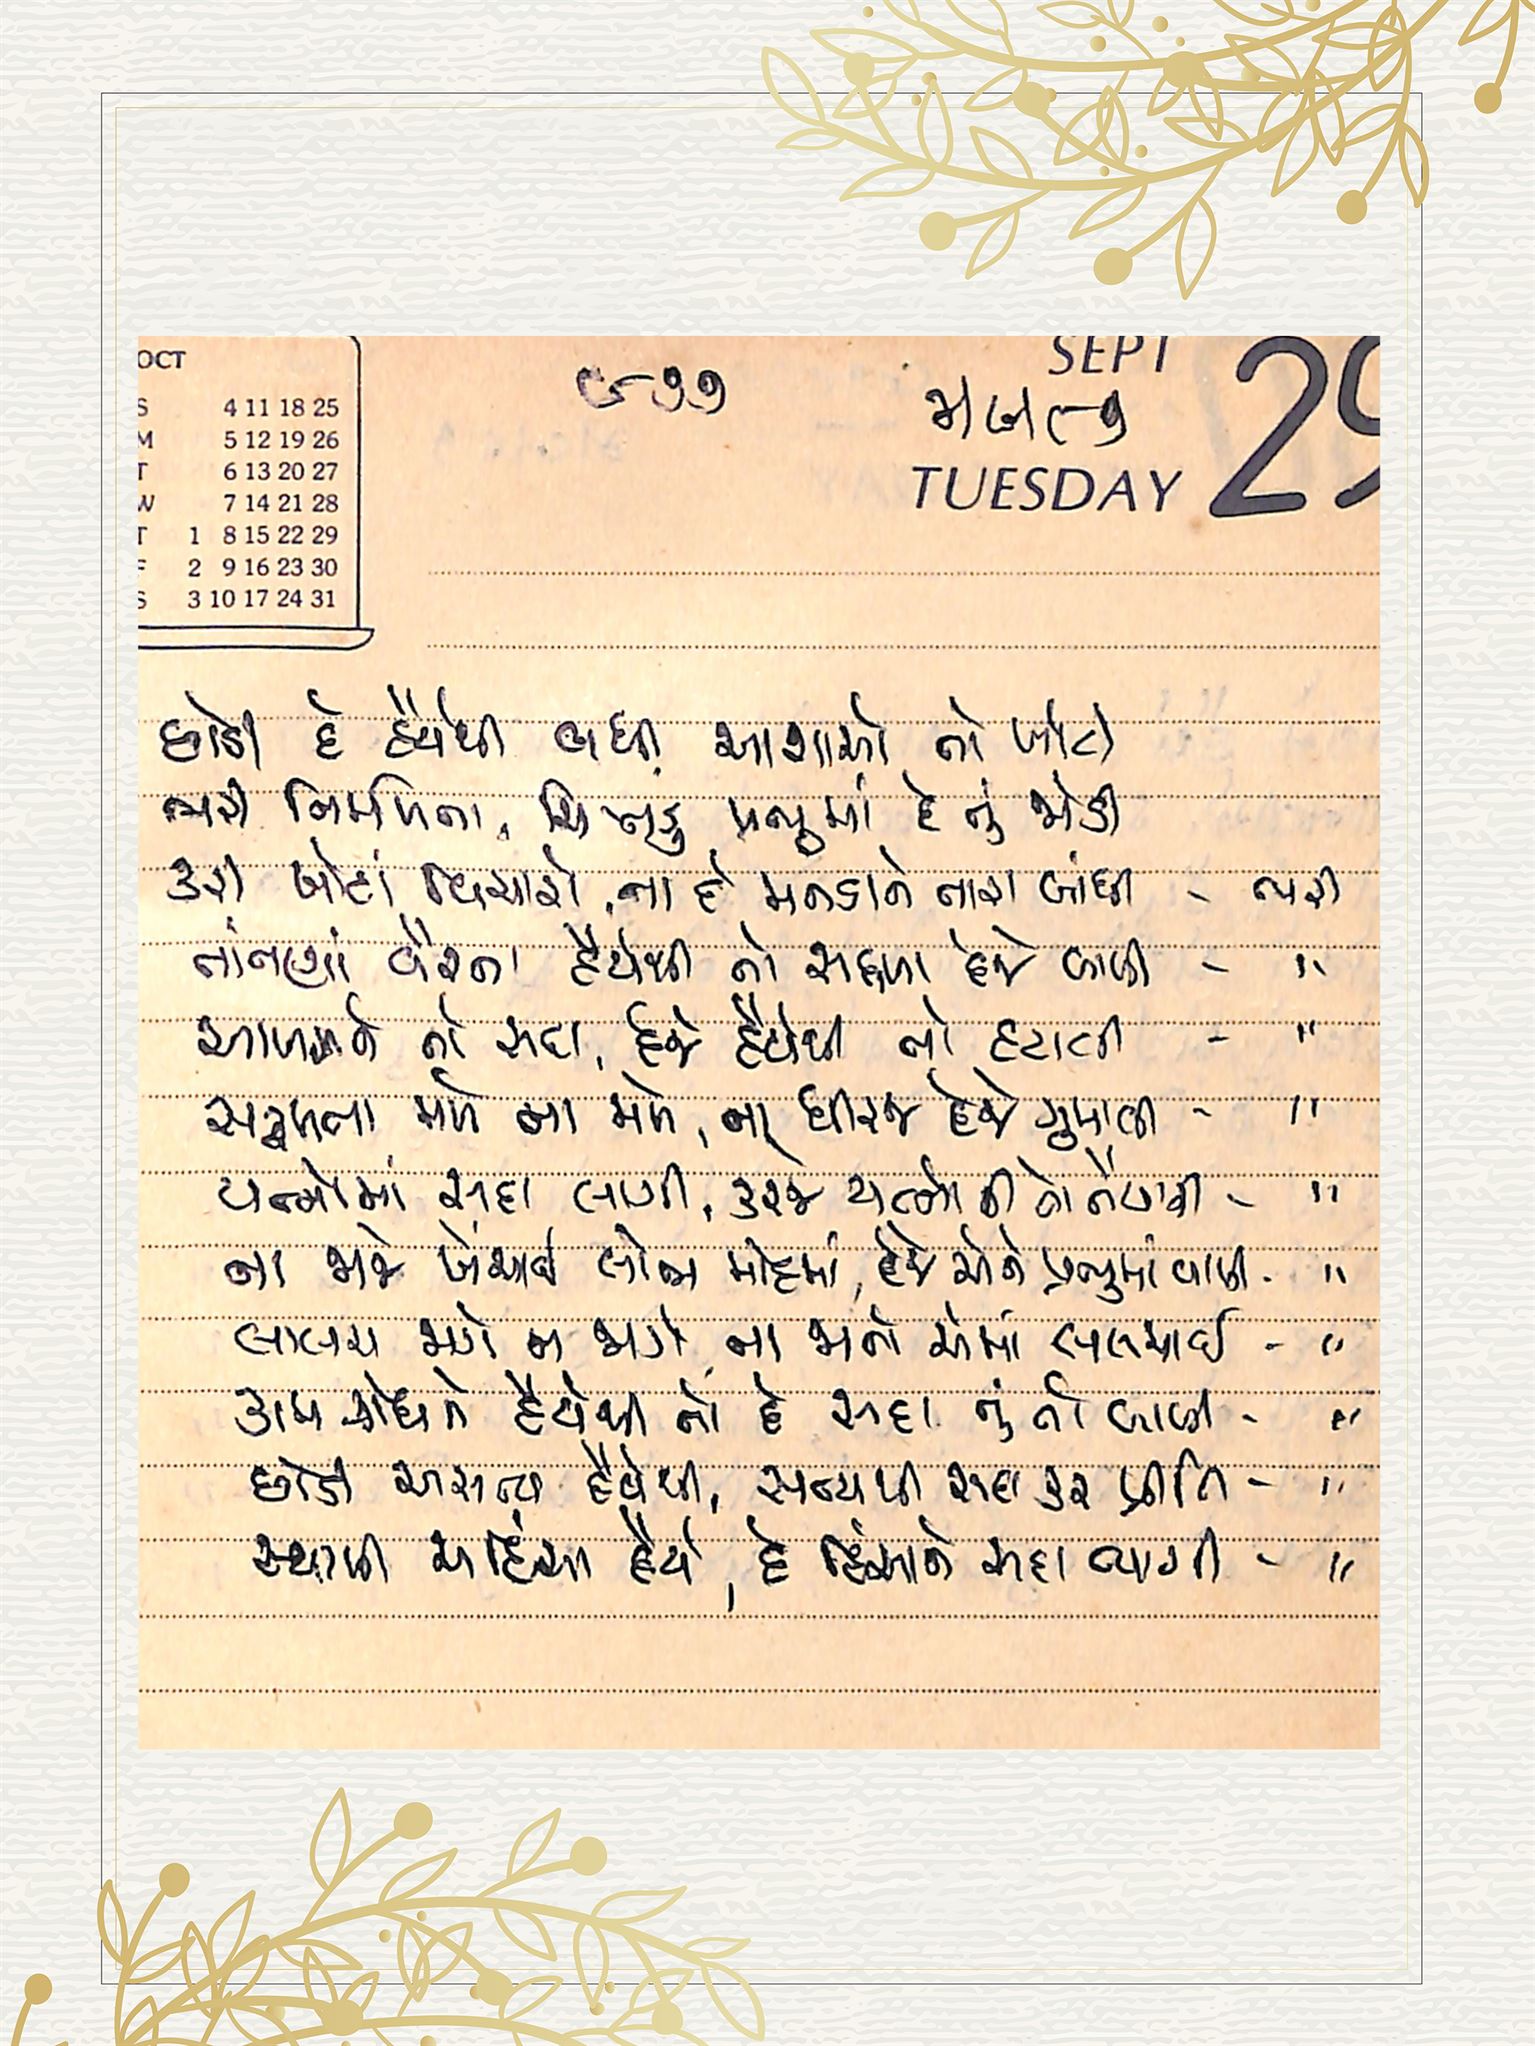 OCT
S 4 11 18 25
M 5 12 19 26
T 6 13 20 27
W 7 14 21 28
T 1 8 15 22 29
F 2 9 16 23 30
S 3 10 17 24 31
૯૧૧
SEPT 29
ભજન
TUESDAY
છોડી દે હૈયેથી બધી આશાઓ તો ખોટી
ભરી નિર્મળતા, ચિત્તડું પ્રભુમાં દે તું જોડી
કરી ખોટાં વિચારો, ના દે મનડાંને તારા બાંધી - ભરી
તાંતણાં વૈરના હૈયેથી તો સઘળા દેજે બાળી - "
આળસને તો સદા, દેજે હૈયેથી તો હટાવી - "
સફળતા મળે ના મળે, ના ધીરજ દેજે ગુમાવી - "
યત્નોમાં સદા લાગી, કરજે યત્નોની તો તૈયારી - "
ના જાજે ખેંચાઈ લોભ મોહમાં, દેજે એને પ્રભુમાં વાળી - "
લાલચ જાગે ન જાગે, ના જાતો એમાં લલચાઈ - "
કામ ક્રોધને હૈયેથી તો દે સદા તું તો બાળી - "
છોડી અસત્ય હૈયેથી, સત્યથી સદા કર પ્રીતિ - "
સ્થાપી અહિંસા હૈયે, દે હિંસાને સદા ત્યાગી - "